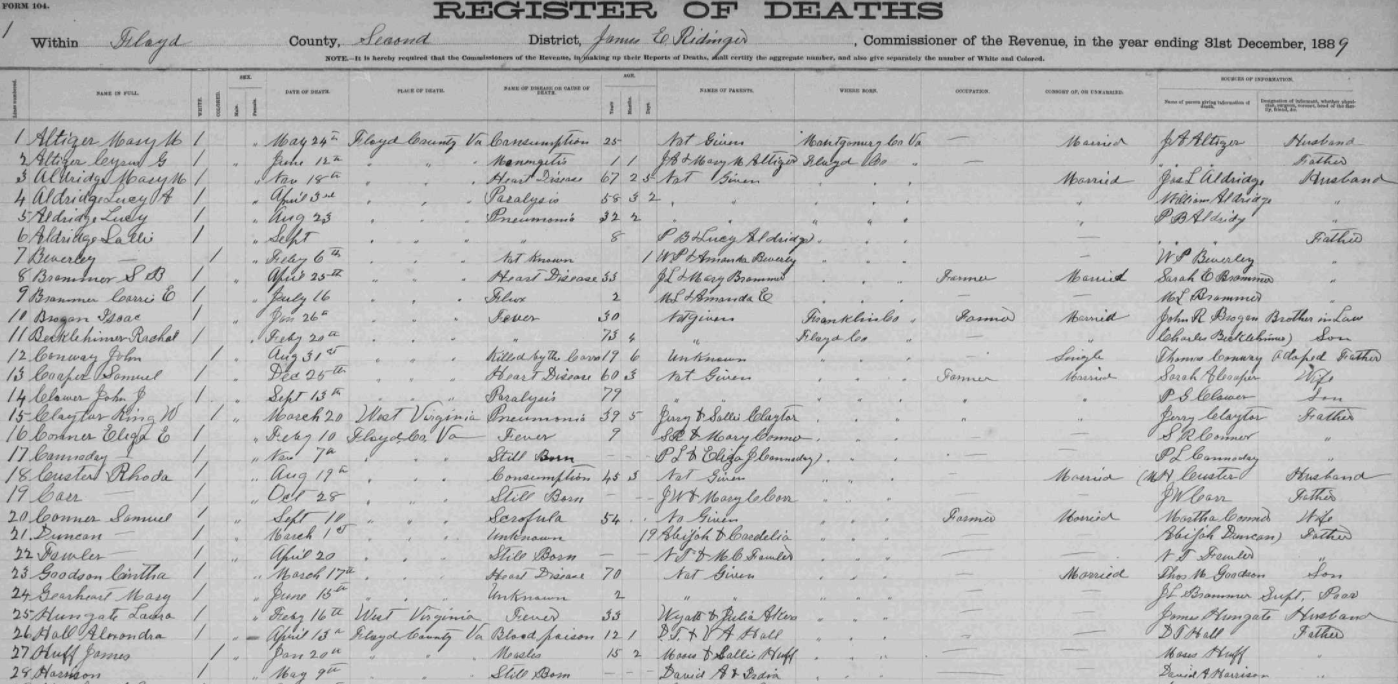 FORM 104.
REGISTER OF DEATHS
1 Within Floyd County, Second District, James E Ridinger, Commissioner of the Revenue, in the year ending 31st December, 1889
NOTE.—It is hereby required that the Commissioners of the Revenue, in making up their Reports of Deaths, shall certify the aggregate number, and also give separately the number of White and Colored.
NAME IN FULL. WHITE. COLORED. SEX. Male. Female. DATE OF DEATH. PLACE OF DEATH. NAME OF DISEASE OR CAUSE OF DEATH. AGE. Years. Months. Days. NAMES OF PARENTS. WHERE BORN. OCCUPATION. CONSORT OF, OR UNMARRIED. SOURCES OF INFORMATION.
1 Altizer Mary M 1 " May 24th Floyd County Va Consumption 25 Not Given Montgomery Co Va — Married J A Altizer Husband
2 Altizer Cyrus G 1 " June 12th " " " 1 1 J A & Mary M Altizer Floyd Co — " " Father
3 Aldridge Mary M 1 " Nov 18th " " " Heart Disease 67 2 Not Given " " — Married Jas L Aldridge Husband
4 Aldridge Lucy 1 " April 3rd " " " Paralysis 58 3 2 " " " " — " William Aldridge "
5 Aldridge Lucy 1 " Aug 23 " " " Pneumonia 32 2 " " " " — " P B Aldridg "
6 Aldridge Lallie 1 " Sept " " " " 8 P B & Lucy Aldridge " " — — " " Father
7 Beverley — 1 " Feby 6th " " " Not Known 1 W P & Amanda Beverly " " — — W P Beverley "
8 Brammer S B 1 " April 25th " " " Heart Disease 33 J L & Mary Brammer " " Farmer Married Sarah E Brammer
9 Brammer Carrie E 1 " July 16 " " " Flux 2 M L & Amanda E " " — — M L Brammer "
10 Brogan Isaac 1 " Jan 26th " " " Fever 30 Not given Franklin Co Farmer Married John R Brogan Brother in Law
11 Becklehimer Rachel 1 " Feby 20th " " " " 73 4 " " Floyd Co — " Charles Becklehimer Son
12 Conway John 1 " Aug 31st " " " Killed by the Cars 19 6 Unknown " " " Single Thomas Conway Adoped Father
13 Cooper Samuel 1 " Dec 25th " " " Heart Disease 60 3 Not Given " " Farmer Married Sarah A Cooper Wife
14 Clower John J 1 " Sept 13th " " " Paralysis 79 " " " " " " P G Clower Son
15 Claytor King W 1 " March 20 West Virginia Pneumonia 39 5 Jerry & Sallie Claytor " " " " Jerry Claytor Father
16 Conner Eliza E 1 " Feby 10 Floyd Co Va Fever 9 S R & Mary Conner " " — — S R Conner "
17 Cannaday — 1 " Nov 7th " " " Still Born — — P L & Eliza J Cannaday " " — — P L Cannaday "
18 Custer Rhoda 1 " Aug 19th " " " Consumption 45 3 Not Given " " — Married Custer Husband
19 Carr — 1 " Oct 28 " " " Still Born — — J W & Mary C Carr " " — — J W Carr Father
20 Conner Samuel 1 " Sept 10 " " " Scrofula 54 No Given " " Farmer Married Martha Conner Wife
21 Duncan — 1 " March 1st " " " Unknown 19 Abijah & Cordelia " " — — Abijah Duncan Father
22 Fowler — 1 " April 20 " " " Still Born — — N T & M C Fowler " " — — N T Fowler "
23 Goodson Cintha 1 " March 17th " " " Heart Disease 70 Not Given " " — Married Thos M Goodson Son
24 Gearheart Mary 1 " June 15th " " " Unknown 2 " " " " — J L Brammer Supt. Poor
25 Hungate Laura 1 " Feby 16th West Virginia Fever 33 Wyatt & Julia Akers " " — James Hungate Husband
26 Hall Alexandra 1 " April 13th Floyd County Va Blood poison 12 1 D T & V A Hall " " — — D T Hall Father
27 Huff James 1 " Jan 20th " " " Measles 15 2 Moses & Sallie Huff " " — — Moses Huff "
28 Harrison 1 " May 9th " " " Still Born — — David A & " " — — David A Harrison "